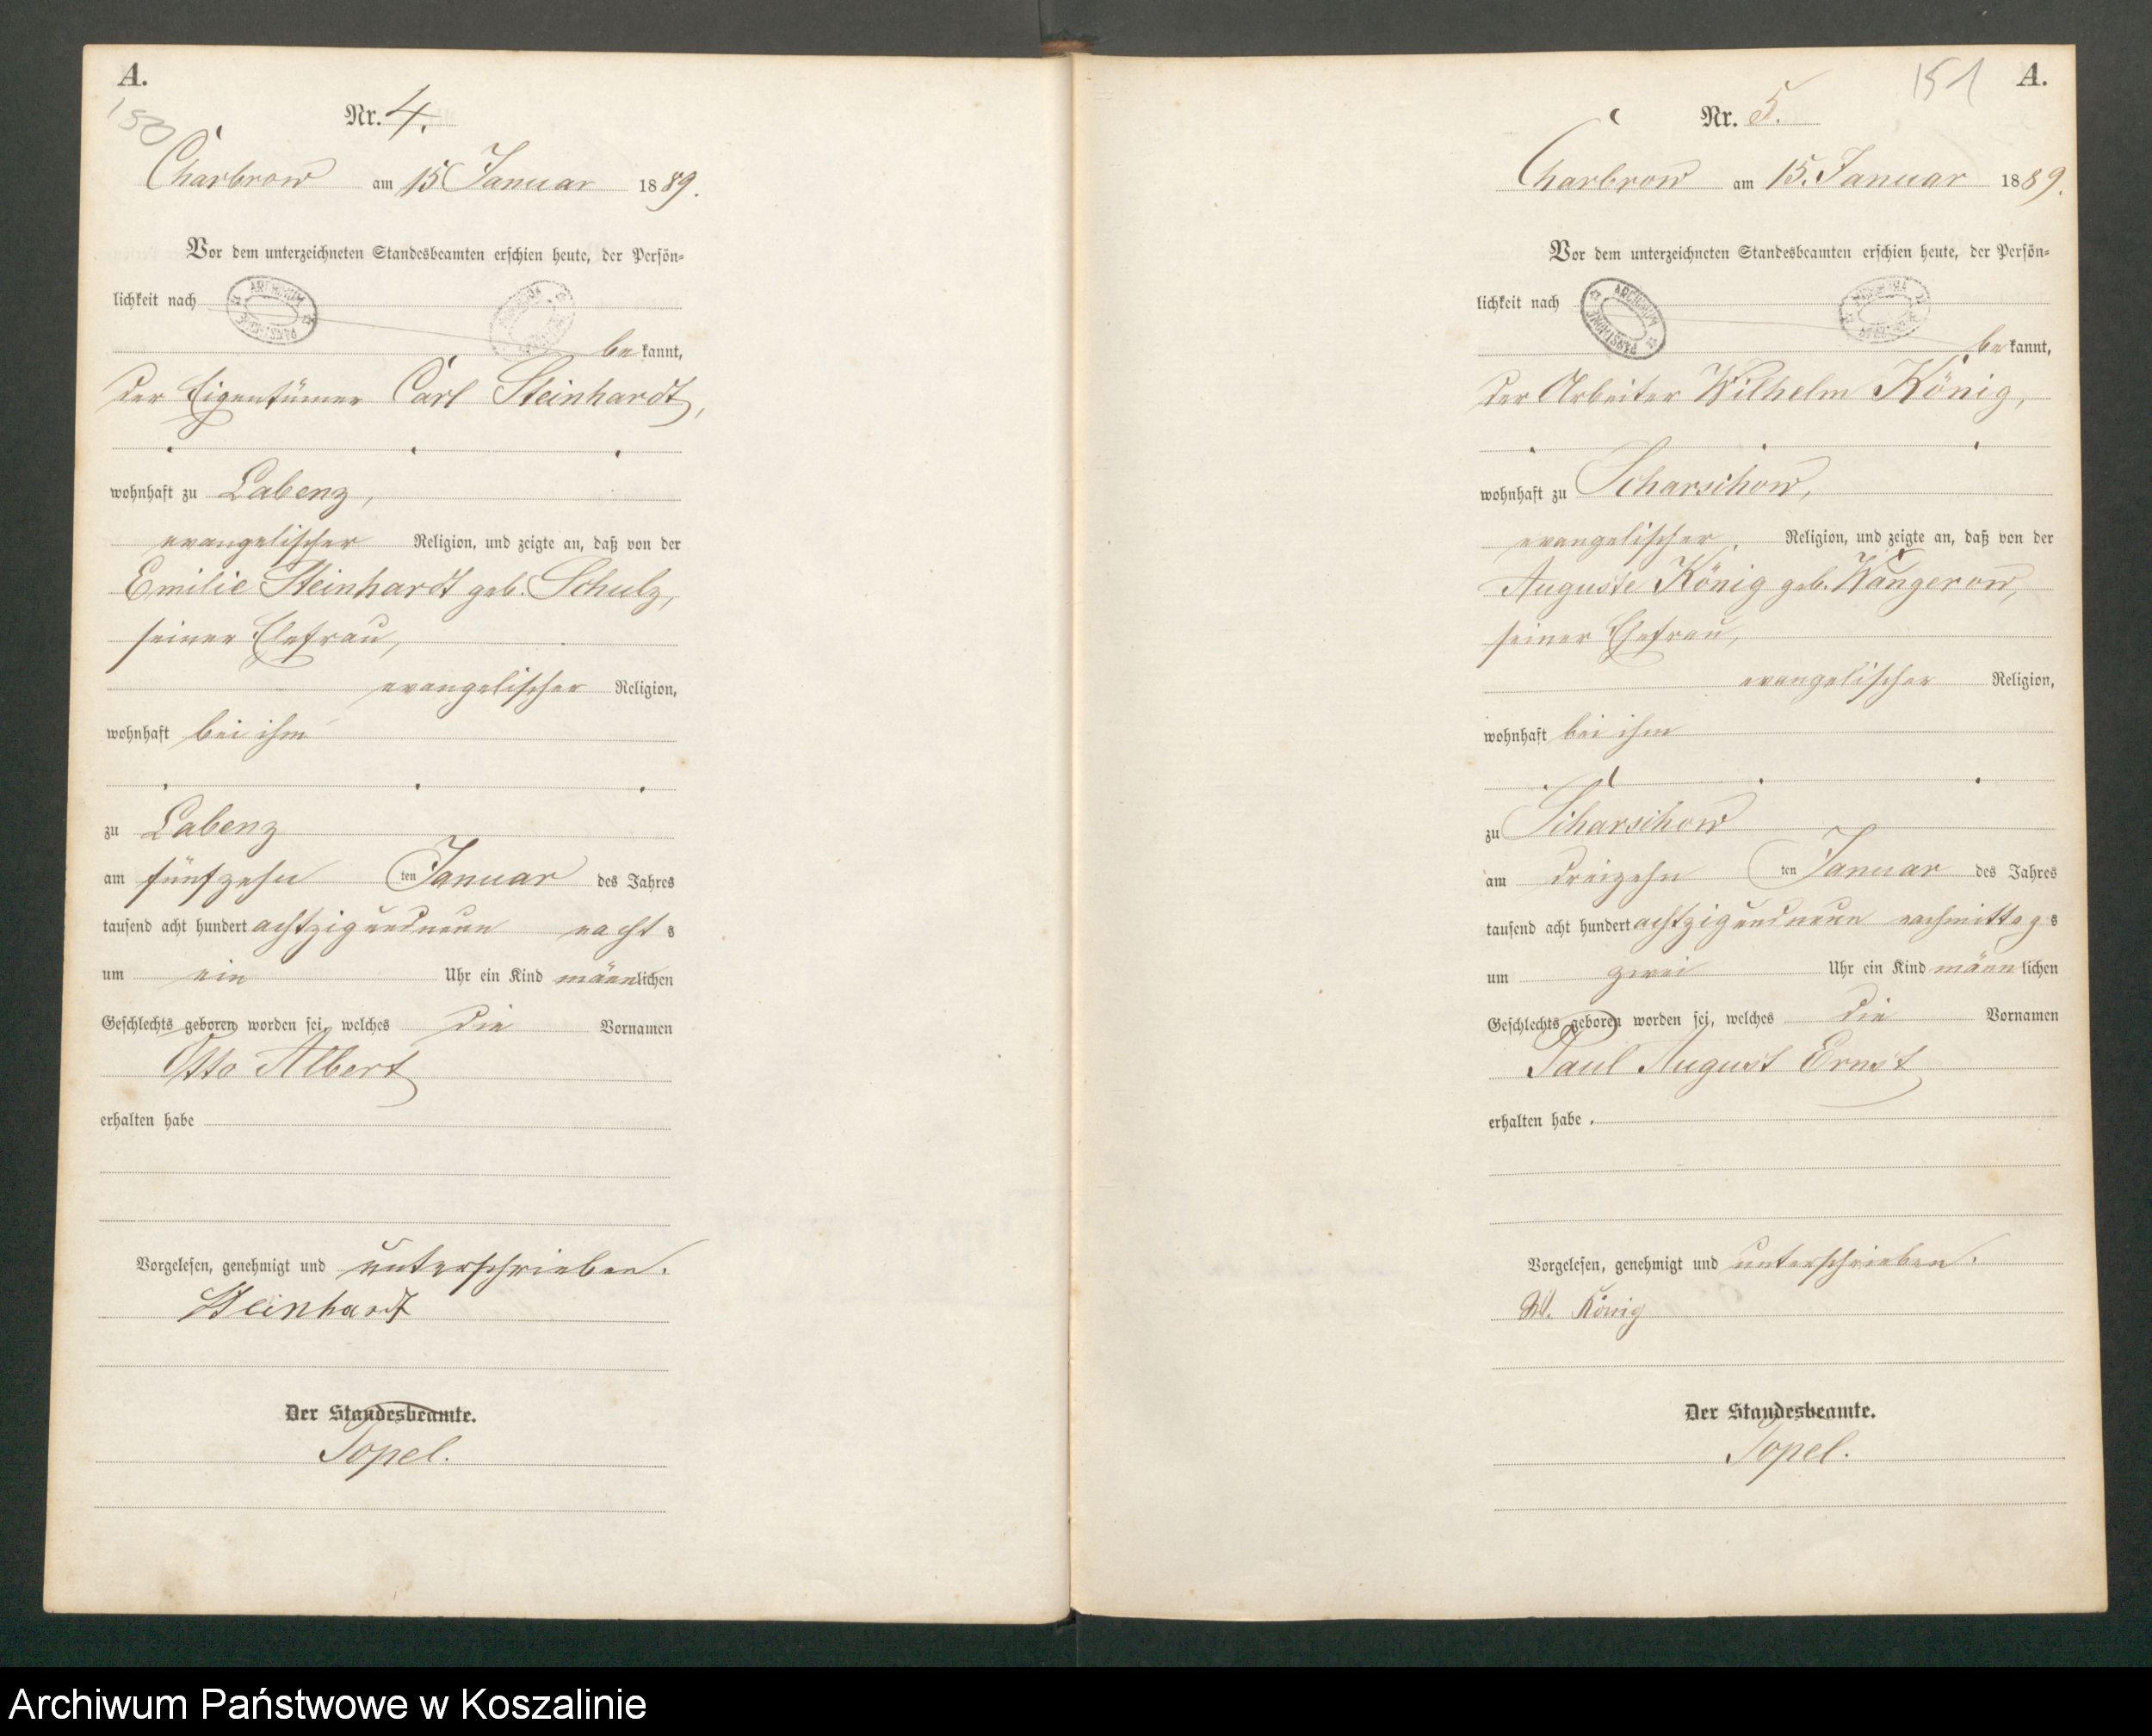 A.
150
Nr. 4.
Charbrow am 15 Januar 1889.
Vor dem unterzeichneten Standesbeamten erschien heute, der Persön=
lichkeit nach
bekannt,
der Eigentümer Carl Steinhardt,
wohnhaft zu Labenz,
evangelischer Religion, und zeigte an, daß von der
Emilie Steinhardt geb. Schulz,
seiner Ehefrau,
evangelischer Religion,
wohnhaft bei ihm
zu Labenz
am fünfzehn ten Januar des Jahres
tausend acht hundert achtzigundneun nachts
um ein Uhr ein Kind männlichen
Geschlechts geboren worden sei, welches die Vornamen
Otto Albert
erhalten habe
Vorgelesen, genehmigt und unterschrieben.
Steinhardt
Der Standesbeamte.
Topel.
151 A.
Nr. 5.
Charbrow am 15. Januar 1889.
Vor dem unterzeichneten Standesbeamten erschien heute, der Persön=
lichkeit nach
ARCHIWUM PAŃSTWOWE
bekannt,
der Arbeiter Wilhelm König,
wohnhaft zu Scharschow,
evangelischer Religion, und zeigte an, daß von der
Auguste König geb. Wangerow,
seiner Ehefrau,
evangelischer Religion,
wohnhaft bei ihm
zu Scharschow
am dreizehn ten Januar des Jahres
tausend acht hundert achtzigundneun nachmittags
um zwei Uhr ein Kind männlichen
Geschlechts geboren worden sei, welches die Vornamen
Paul August Ernst
erhalten habe.
Vorgelesen, genehmigt und unterschrieben.
W. König
Der Standesbeamte.
Topel.
Archiwum Państwowe w Koszalinie